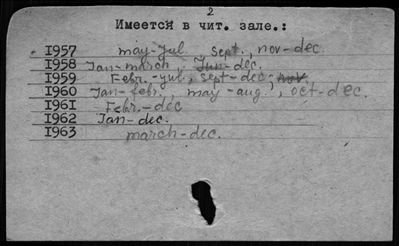 2
Имеется в чит. зале.:
1957 may-jul, sept., nov-dec.
1958 Jan-march, Jun-dec.
1959 Febr.-yul, sept-dec. nov.
1960 Jan-febr., may-aug., oct-dec.
1961 Febr.-dec
1962 Jan-dec.
1963 march-dec.